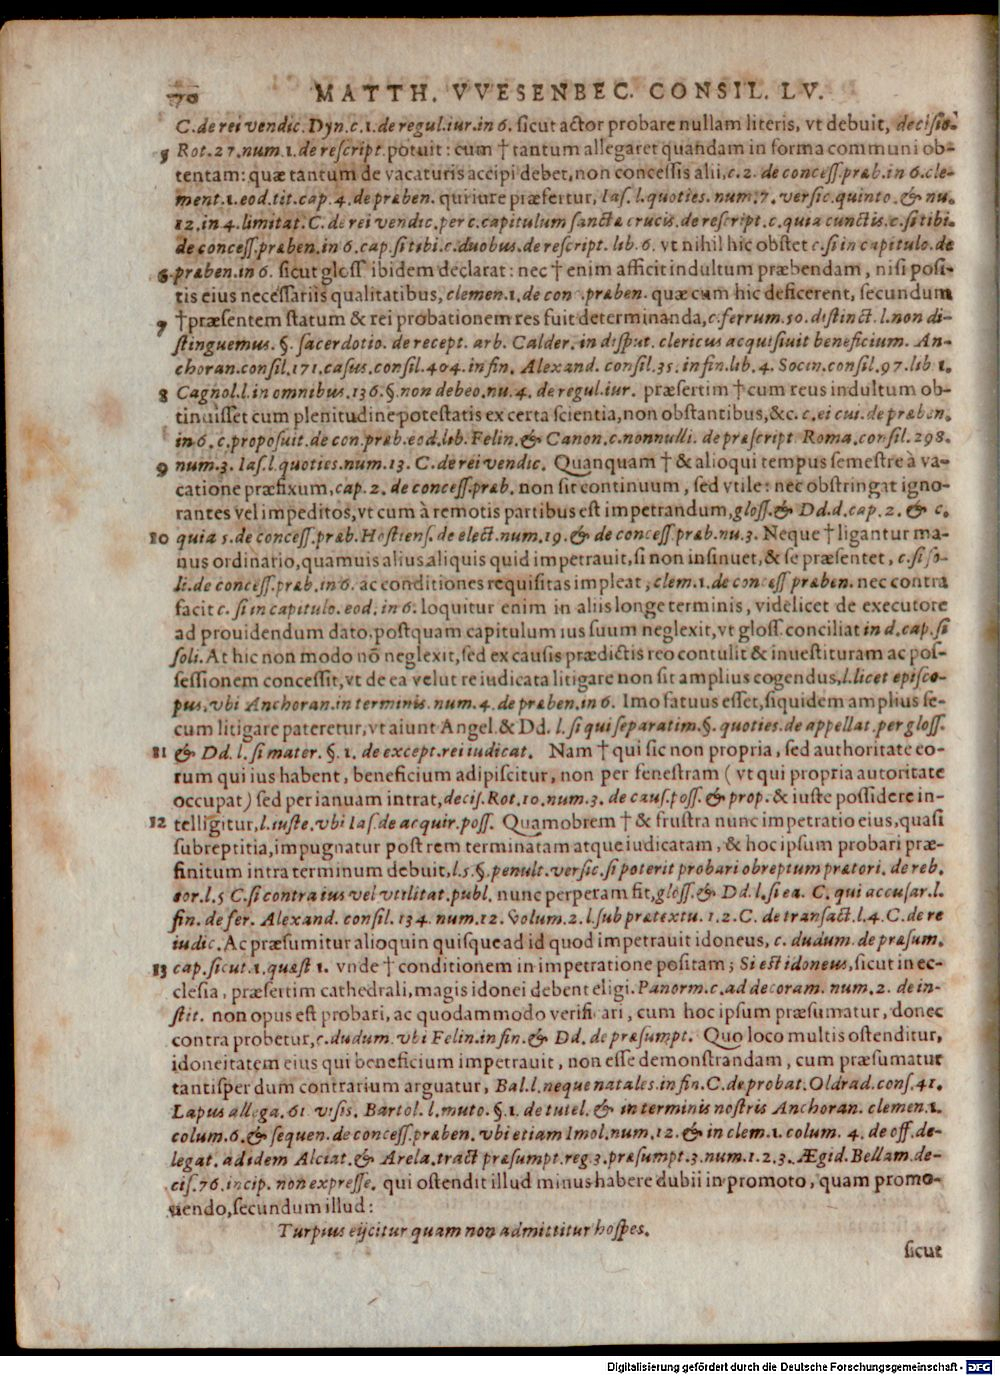 70 MATTH. VVESENBEC. CONSIL. LV.
C. de rei vendic. Dyn. c. 1. de regul. iur. in 6. sicut actor probare nullam literis, vt debuit, decisio.
5 Rot. 27. num. 1. de rescript. potuit: cum † tantum allegaret quandam in forma communi ob-
tentam: quæ tantum de vacaturis accipi debet, non concessis alii, c. 2. de concess. præb. in 6. cle-
ment. 1. eod. tit. cap. 4. de præben. qui iure præfertur, Ias. l. quoties. num. 7. versic. quinto. & nu.
12. in 4. limitat. C. de rei vendic. per c. capitulum sanctæ crucis. de rescript. c. quia cunctis. c. si tibi.
de concess. præben. in 6. cap. si tibi. c. duobus. de rescript. lib. 6. vt nihil hic obstet c. si in capitulo. de
6 præben. in 6. sicut gloss ibidem declarat: nec † enim afficit indultum præbendam, nisi posi-
tis eius necessariis qualitatibus, clemen. 1. de con .præben. quæ cum hic deficerent, secundum
7 † præsentem statum & rei probationem res fuit determinanda, c. ferrum. 50. distinct. l. non di-
stinguemus. §. sacerdotio. de recept. arb. Calder. in disput. clericus acquisiuit beneficium. An-
choran. consil. 171. casus. consil. 404. in fin. Alexand. consil. 35. in fin. lib. 4. Socin. consil. 97. lib 1.
8 Cagnol. l. in omnibus. 136. §. non debeo. nu. 4. de regul. iur. præsertim † cum reus indultum ob-
tinuisset cum plenitudine potestatis ex certa scientia, non obstantibus, &c. c. ei cui. de præben.
in 6. c. proposuit. de con. præb. eod. lib. Felin. & Canon. c. nonnulli. de præscript. Roma. consil. 298.
9 num. 3. Ias. l. quoties. num. 13. C. de rei vendic. Quanquam † & alioqui tempus semestre à va-
catione præfixum, cap. 2. de concess. præb. non sit continuum, sed vtile: nec obstringat igno-
rantes vel impeditos, vt cum à remotis partibus est impetrandum, gloss. & Dd. d. cap. 2. & c.
10 quia s. de concess. præb. Hostiens. de elect. num. 19. & de concess. præb. nu. 3. Neque † ligantur ma-
nus ordinario, quamuis alius aliquis quid impetrauit, si non insinuet, & se præsentet, c. si so-
li. de concess. præb. in 6. ac conditiones requisitas impleat, clem. 1. de concess præben. nec contra
facit c. si in capitulo. eod. in 6. loquitur enim in aliis longe terminis, videlicet de executore
ad prouidendum dato, postquam capitulum ius suum neglexit, vt gloss. conciliat in d. cap. si
soli. At hic non modo nō neglexit, sed ex causis prædictis reo contulit & inuestituram ac pos-
sessionem concessit, vt de ea velut re iudicata litigare non sit amplius cogendus, l. licet episco-
pus. vbi Anchoran. in terminis. num. 4. de præben. in 6. Imo fatuus esset, siquidem amplius se-
cum litigare pateretur, vt aiunt Angel. & Dd. l. si qui separatim. §. quoties. de appellat. per gloss.
11 & Dd. l. si mater. §. 1. de except. rei iudicat. Nam † qui sic non propria, sed authoritate eo-
rum qui ius habent, beneficium adipiscitur, non per fenestram (vt qui propria autoritate
occupat) sed per ianuam intrat, decis. Rot. 10. num. 3. de caus. poss. & prop. & iuste possidere in-
12 telligitur, l. iuste. vbi Ias. de acquir. poss. Quamobrem † & frustra nunc impetratio eius, quasi
subreptitia, impugnatur post rem terminatam atque iudicatam, & hoc ipsum probari præ-
finitum intra terminum debuit, l. 5. §. penult. versic. si poterit probari obreptum prætori. de reb.
eor. l. 5 C. si contra ius vel vtilitat. publ. nunc perperam fit, gloss. & Dd. l. si ea. C. qui accusar. l.
fin. de fer. Alexand. consil. 134. num. 12. volum. 2. l. sub prætextu. 1. 2. C. de transact. l. 4. C. de re
iudic. Ac præsumitur alioquin quisque ad id quod impetrauit idoneus, c. dudum. de præsum.
13 cap. sicut. 1. quæst 1. vnde † conditionem in impetratione positam; Si est idoneus, sicut in ec-
clesia, præsertim cathedrali, magis idonei debent eligi. Panorm. c. ad decoram. num. 2. de in-
stit. non opus est probari, ac quodammodo verificari, cum hoc ipsum præsumatur, donec
contra probetur, c. dudum. vbi Felin. in fin. & Dd. de præsumpt. Quo loco multis ostenditur,
idoneitatem eius qui beneficium impetrauit, non esse demonstrandam, cum præsumatur
tantisper dum contrarium arguatur, Bal. l. neque natales. in fin. C. de probat. Oldrad. cons. 41.
Lapus allega. 61. visis. Bartol. l. muto. §. 1. de tutel. & in terminis nostris Anchoran. clemen. 1.
colum. 6. & sequen. de concess. præben. vbi etiam Imol. num. 12. & in clem. 1. colum. 4. de off. de-
legat. ad idem Alciat. & Arela. tract præsumpt. reg. 3. præsumpt. 3. num. 1. 2. 3. Ægid. Bellam. de-
cis. 76. incip. non expresse. qui ostendit illud minus habere dubii in promoto, quam promo-
uendo, secundum illud:
Turpius eijcitur quam non admittitur hospes.
sicut
Digitalisierung gefördert durch die Deutsche Forschungsgemeinschaft - DFG